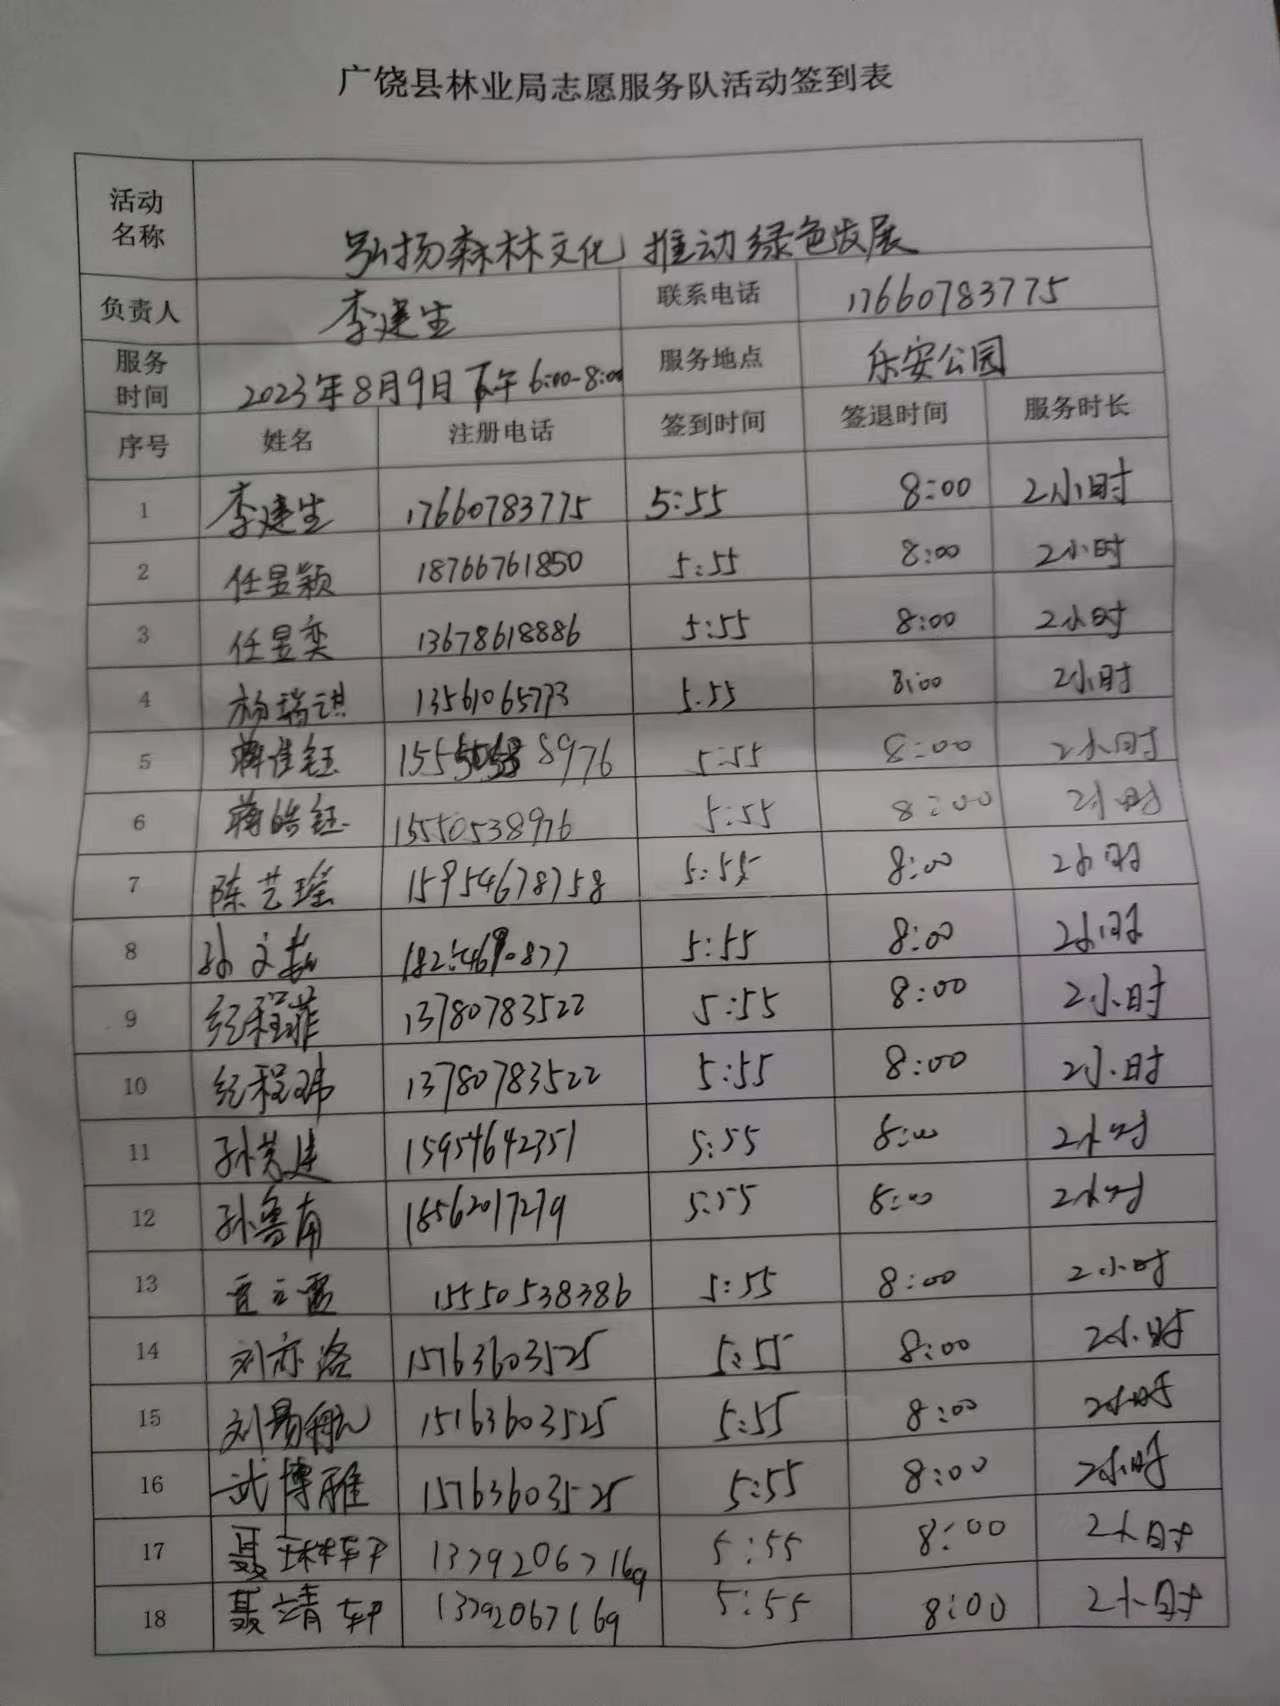 广饶县林业局志愿服务队活动签到表
活动名称 弘扬森林文化 推动绿色发展
负责人 李建生 联系电话 17660783775
服务时间 2023年8月9日下午6:00-8:00 服务地点 乐安公园
序号 姓名 注册电话 签到时间 签退时间 服务时长
1 李建生 17660783775 5:55 8:00 2小时
2 任昱颖 18766761850 5:55 8:00 2小时
3 任昱奕 13678618886 5:55 8:00 2小时
4 杨瑞祺 13561065773 5:55 8:00 2小时
5 蒋佳钰 8976 5:55 8:00 2小时
6 蒋皓钰 15550538976 5:55 8:00 2小时
7 陈艺瑶 15954678758 5:55 8:00 2小时
8 孙文 5:55 8:00 2小时
9 纪程菲 13780783522 5:55 8:00 2小时
10 纪程玮 13780783522 5:55 8:00 2小时
11 孙芳建 15954642351 5:55 8:00 2小时
12 孙鲁南 18562017279 5:55 8:00 2小时
13 15550538386 5:55 8:00 2小时
14 刘亦洛 15763603525 5:55 8:00 2小时
15 刘易航 15163603525 5:55 8:00 2小时
16 武博雅 15763603525 5:55 8:00 2小时
17 聂琳轩 13792067169 5:55 8:00 2小时
18 聂靖轩 13792067169 5:55 8:00 2小时